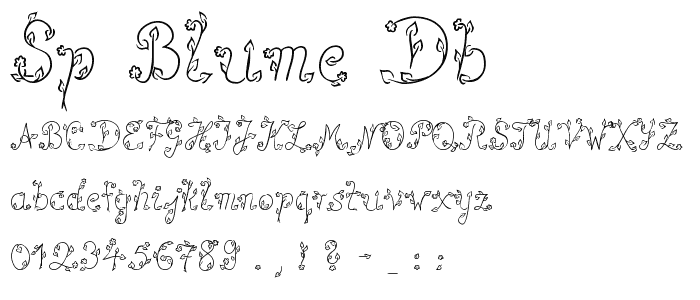 Sp Blume Db
ABCDEFGHIJKLMNOPQRSTUVWXYZ
abcdefghijklmnopqrstuvwxyz
0123456789 . , ! ? - _ : ;